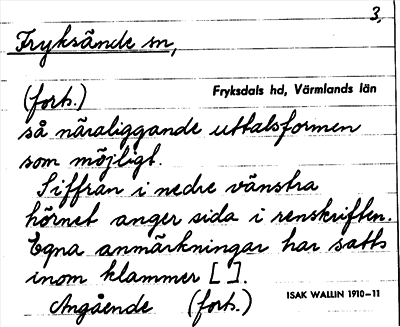 3.
Fryksände sn,
(forts.) Fryksdals hd, Värmlands län
så näraliggande uttalsformen
som möjligt.
Siffran i nedre vänstra
hörnet anger sida i renskriften.
Egna anmärkningar har satts
inom klammer [ ].
Angående (forts.) ISAK WALLIN 1910-11